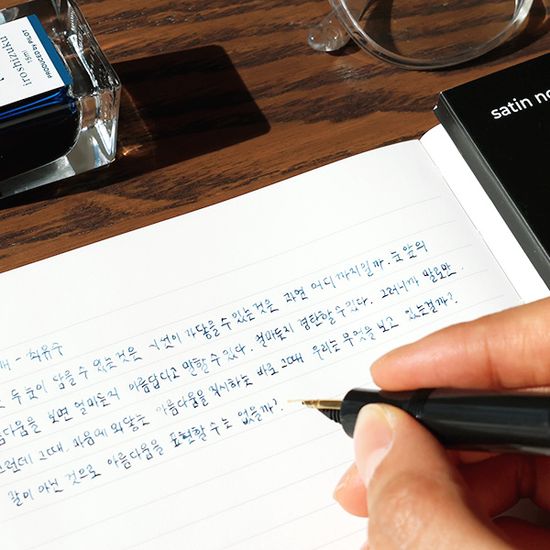 PRODUCED by PILOT
15ml
iroshizuku
satin no
- 최유수
시선이 가닿을 수 있는 것은 과연 어디까지일까. 눈앞의
두 눈이 담을 수 있는 것은
얼마든지 경탄할 수 있다. 그러니까 말로만
아름다움을 보면 얼마든지 아름답다고 말할 수 있다.
그런데 그때, 마음에 와닿는 아름다움을 직시하는 바로 그때 우리는 무엇을 보고 있는 걸까?
말이 아닌 것으로 아름다움을 표현할 수는 없을까?